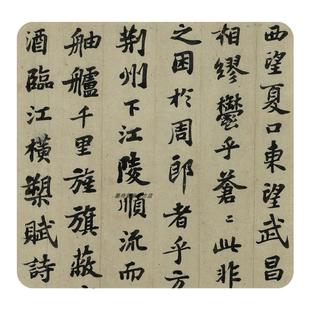 西望夏口東望武昌
相繆欝乎蒼〻此非
之困於周郎者乎方
荊州下江陵順流而
舳艫千里旌旗蔽
酒臨江橫槊賦詩